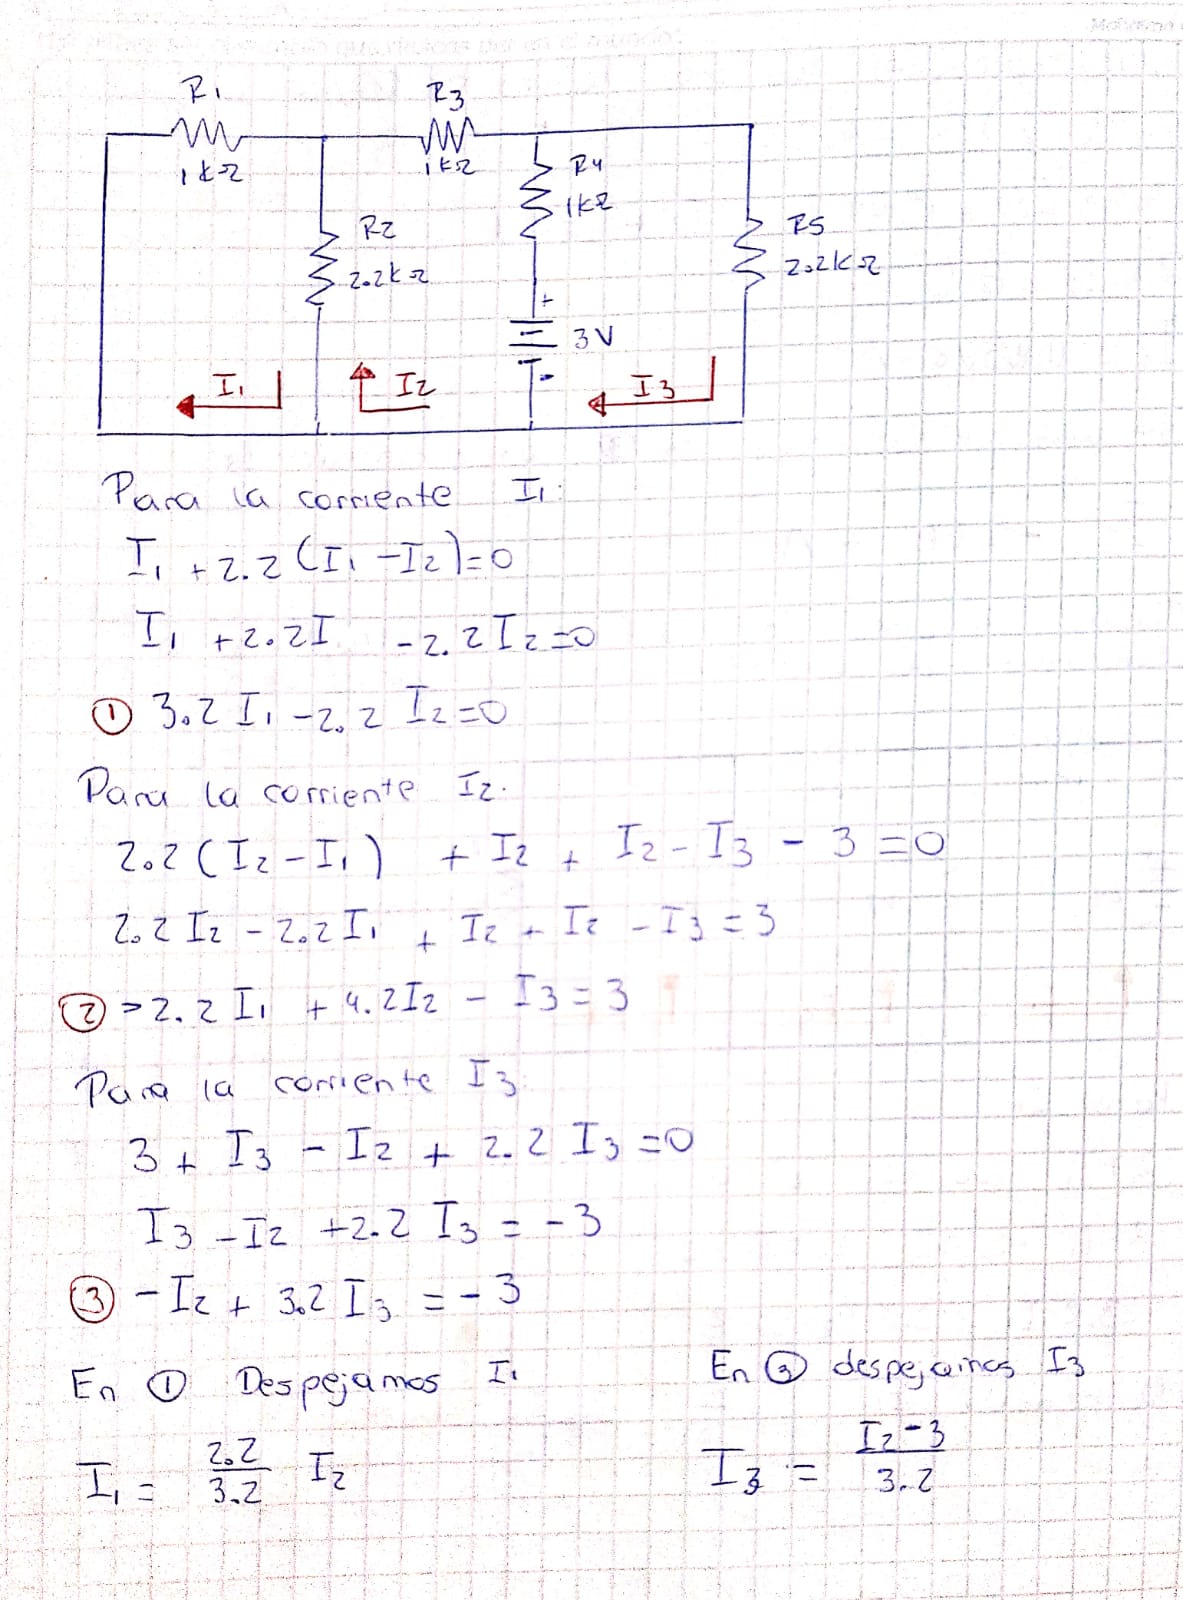 R1
R3
1kΩ
1kΩ
R4
1kΩ
R2
2.2kΩ
R5
2.2kΩ
+
3V
-
I1
I2
I3
Para la corriente I1.
I1 + 2.2 (I1 - I2) = 0
I1 + 2.2I - 2.2 I2 = 0
① 3.2 I1 - 2.2 I2 = 0
Para la corriente I2.
2.2 (I2 - I1) + I2 + I2 - I3 - 3 = 0
2.2 I2 - 2.2 I1 + I2 + I2 - I3 = 3
② > 2.2 I1 + 4.2I2 - I3 = 3
Para la corriente I3.
3 + I3 - I2 + 2.2 I3 = 0
I3 - I2 + 2.2 I3 = - 3
③ - I2 + 3.2 I3 = - 3
En ① Despejamos I1
En ③ despejamos I3
I1 = 2.2/3.2 I2
I3 = I2 - 3/3.2